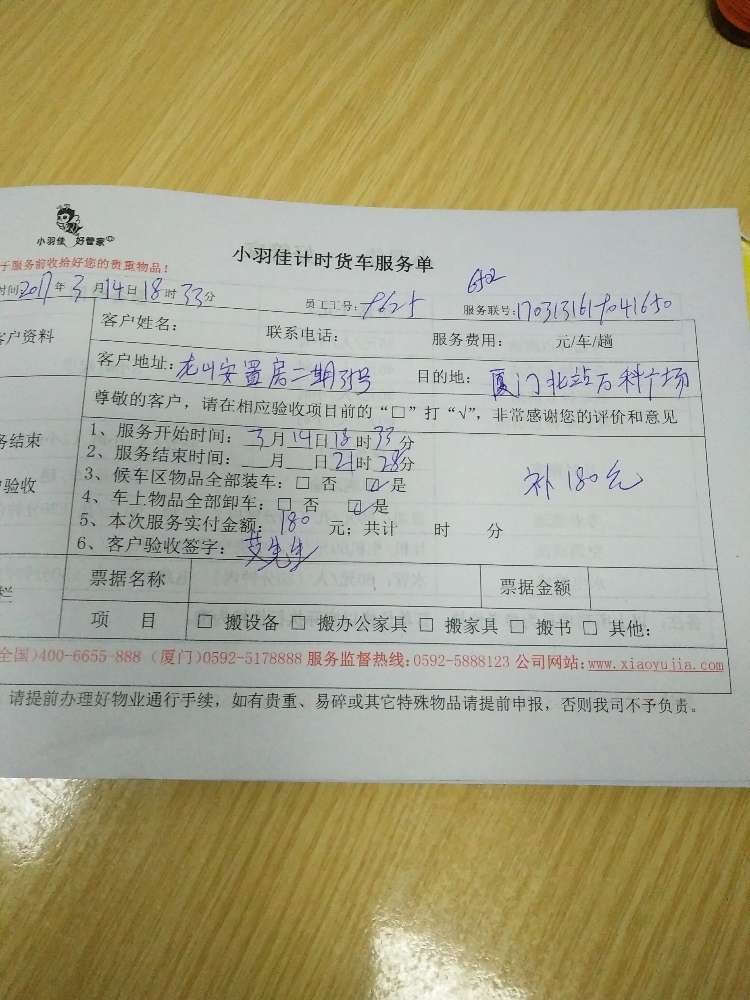 小羽佳 好管家
小羽佳计时货车服务单
于服务前收给好您的贵重物品!
时间2017年3月14日18时33分 员工工号: 9625 服务联号:
652
客户资料 客户姓名: 联系电话: 服务费用: 元/车/趟
客户地址: 安置房二期31号 目的地: 厦门北站万科广场
尊敬的客户,请在相应验收项目前的“□”打“√”,非常感谢您的评价和意见
1、服务开始时间:3月14日18时33分
务结束 2、服务结束时间:___月___日21时28分
验收 3、候车区物品全部装车:□ 否 ☑是 补180元
4、车上物品全部卸车:□ 否 ☑是
5、本次服务实付金额:180 元;共计 时 分
6、客户验收签字:黄先生
栏 票据名称 票据金额
项 目 □ 搬设备 □ 搬办公家具 □ 搬家具 □ 搬书 □ 其他:
全国)400-6655-888 (厦门)0592-5178888 服务监督热线:0592-5888123 公司网站:www.xiaoyujia.com
请提前办理好物业通行手续,如有贵重、易碎或其它特殊物品请提前申报,否则我司不予负责。